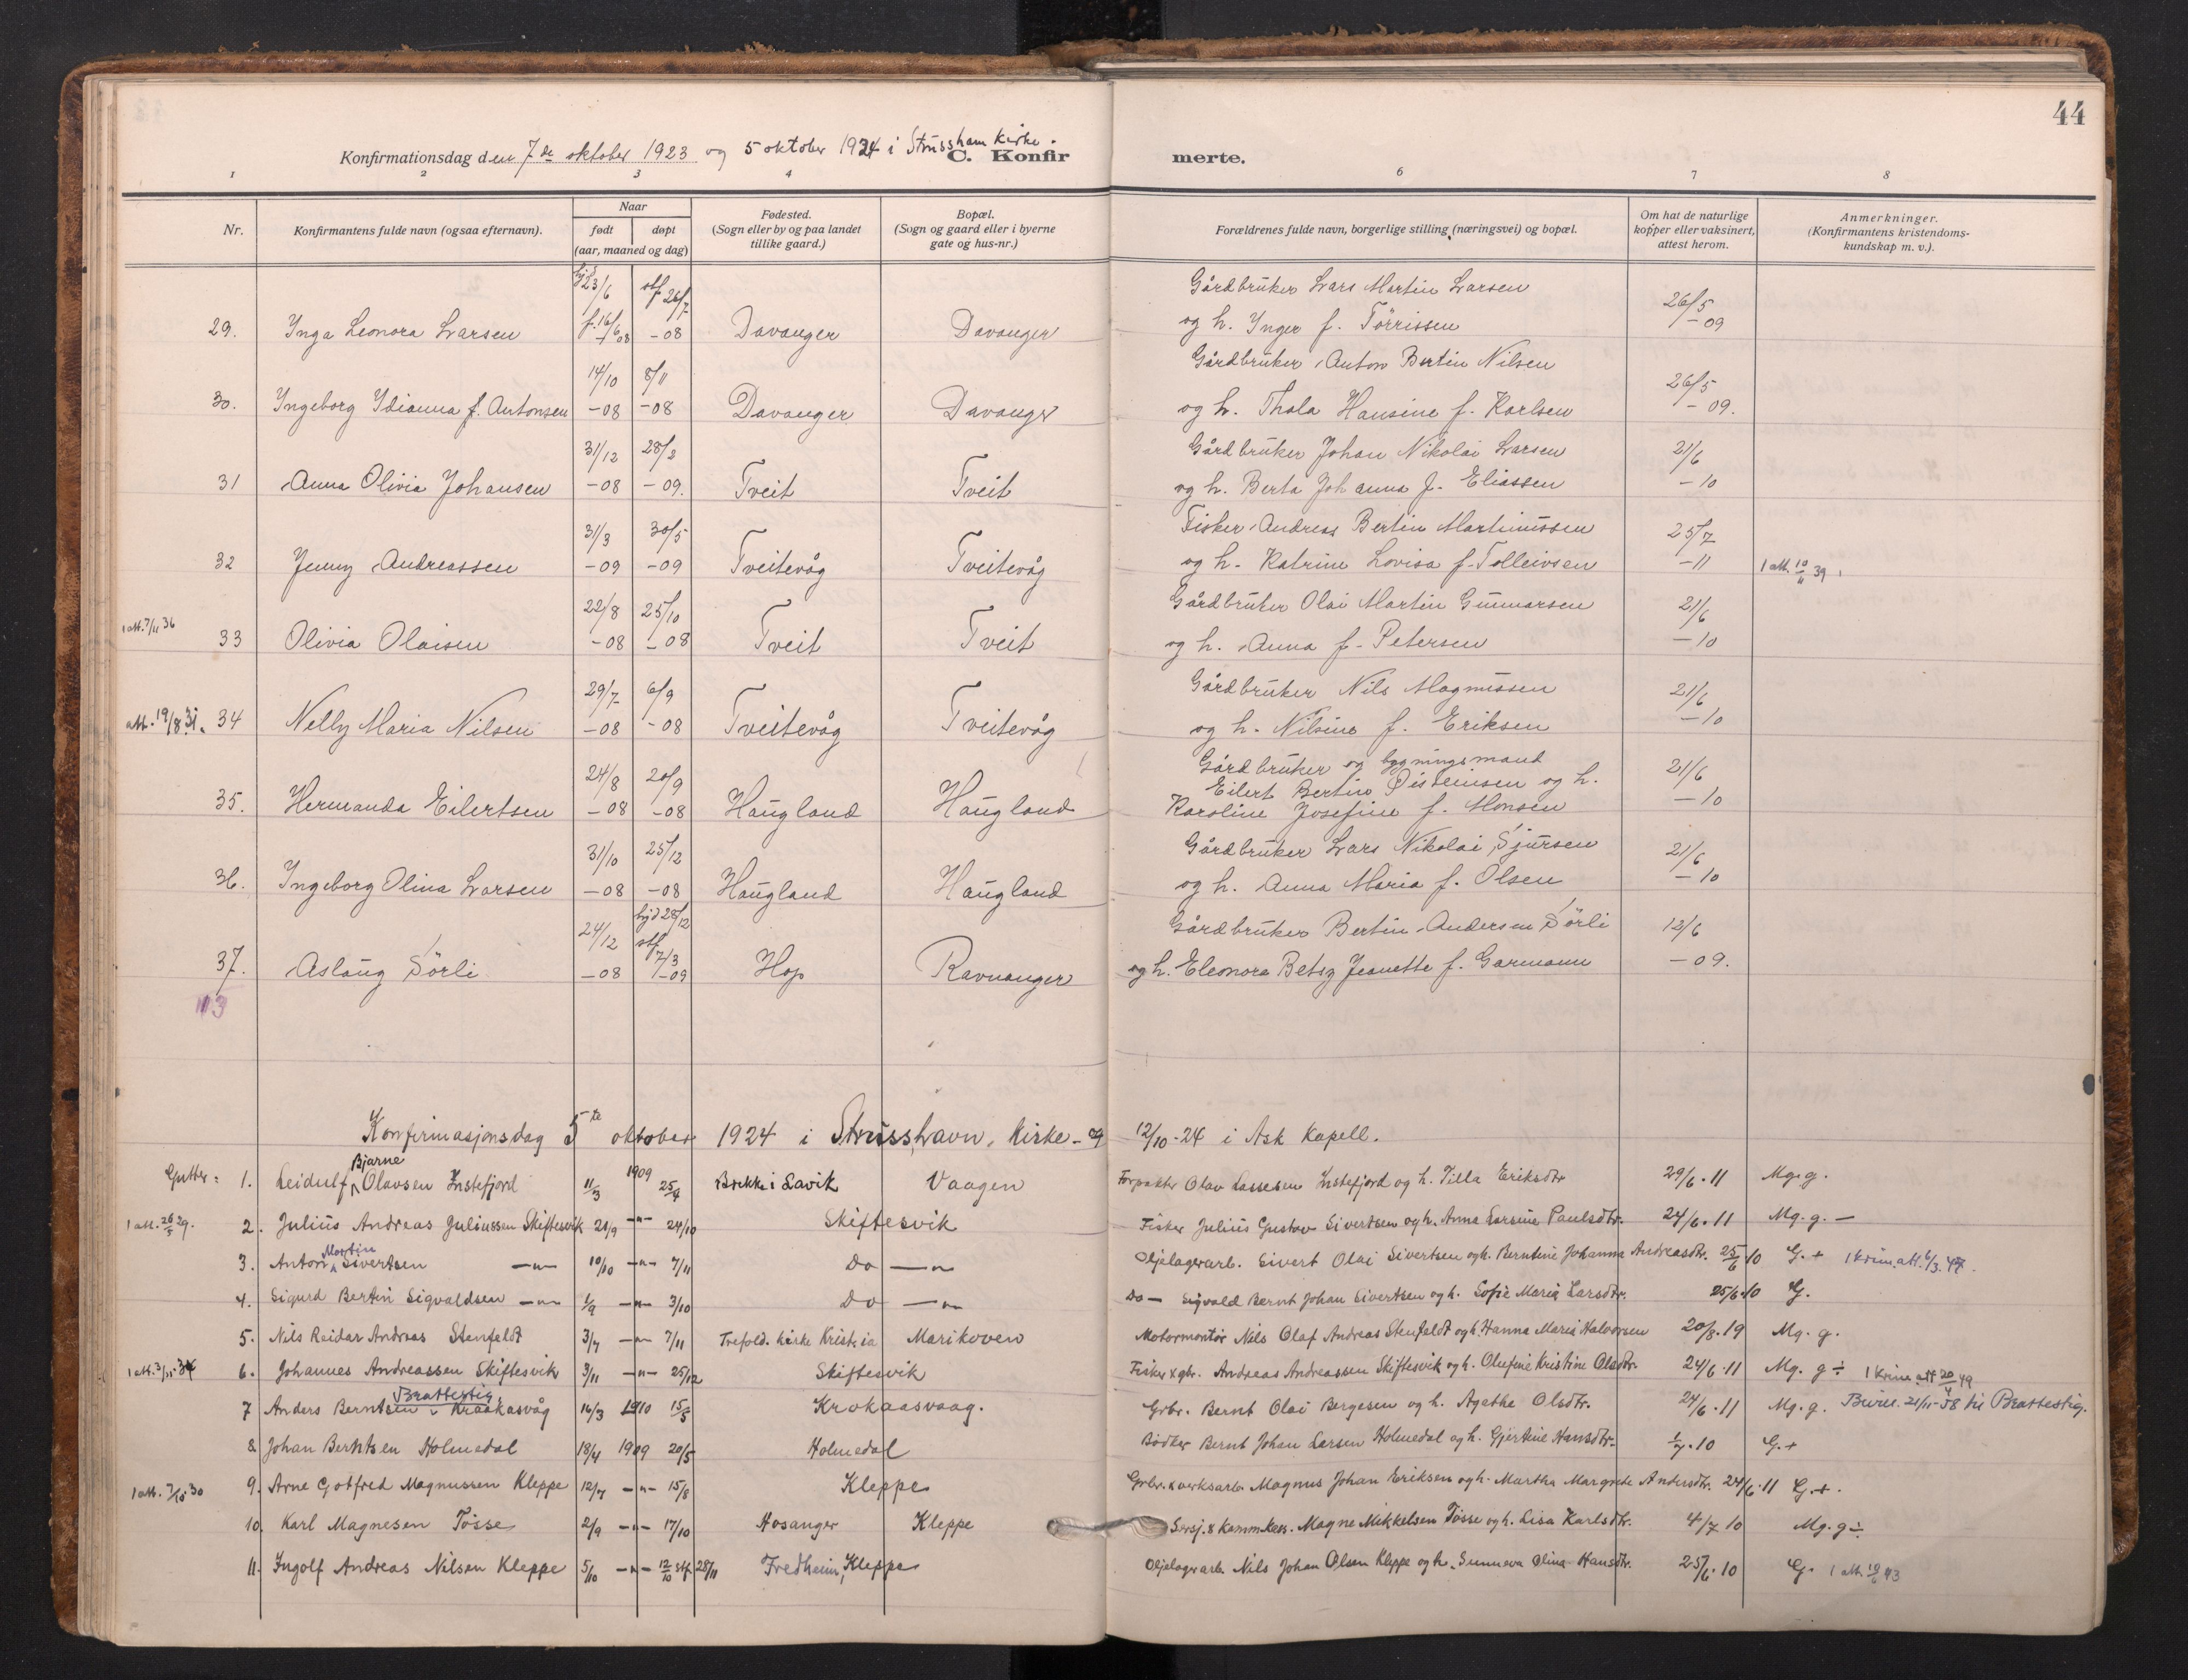 44
Konfirmationsdag den 7de oktober 1923 og 5 oktober 1924 i Strusshamn Kirke.
C. Konfir merte.
1 2 3 4 6 7 8
Nr.
Konfirmantens fulde navn (ogsaa efternavn).
Naar
født
døpt
(aar, maaned og dag)
Fødested.
(Sogn eller by og paa landet
tillike gaard.)
Bopæl.
(Sogn og gaard eller i byerne
gate og hus-nr.)
Forældrenes fulde navn, borgerlige stilling (næringsvei) og bopæl.
Om hat de naturlige
kopper eller vaksinert,
attest herom.
Anmerkninger.
(Konfirmantens kristendoms-
kundskap m. v.).
hjd 23/6 stf 26/7 Gårdbruker Lars Martin Larsen 26/5
29. Inga Leonora Larsen f. 16/6 -08 -08 Davanger Davanger og h. Inger f. Tørrissen -09
14/10 8/11 Gårdbruker Anton Bertin Nilsen 26/5
30. Ingeborg Idianna f. Antonsen -08 -08 Davanger Davanger og h. Thala Hansine f. Karlsen -09.
31/12 28/2 Gårdbruker Johan Nikolai Larsen 21/6
31 Anna Olivia Johansen -08 -09. Tveit Tveit og h. Berta Johanna f. Eliassen -10
31/3 30/5 Fisker Andreas Bertin Martinussen 25/7
32 Jenny Andreassen -09 -09 Tveitevåg Tveitevåg og h. Katrine Lovisa f. Tolleivsen -11 1 att. 10/11 39
22/8 25/10 Gårdbruker Olai Martin Gunnarsen 21/6
1 att. 7/11 36 33 Olivia Olaisen -08 -08 Tveit Tveit og h. Anna f. Petersen -10
29/7 6/9 Gårdbruker Nils Magnussen 21/6
att. 19/8 31. 34 Nelly Maria Nilsen -08 -08 Tveitevåg Tveitevåg og h. Nilsine f. Eriksen -10
Gårdbruker og bygningsmand
24/8 20/9 Eilert Bertin Øisteinsen og h. 21/6
35. Hermanda Eilertsen -08 -08 Haugland Haugland Karoline Josefine f. Monsen -10
31/10 25/12 Gårdbruker Lars Nikolai Sjursen 21/6
36. Ingeborg Olina Larsen -08 -08 Haugland Haugland og h. Anna Maria f. Olsen -10
24/12 hjd 28/12 stf 7/3 Gårdbruker Bertin Andersen Sørli 12/6
37. Aslaug Sørli -08 -09 Hop Ravnanger og h. Eleonora Betsy Jeanette f. Garmann -09.
113
Konfirmasjonsdag 5te oktober 1924 i Strusshavn, Kirke - og 12/10-24 i Ask Kapell.
Gutter: 1. Leidulf Bjarne Olavsen Instefjord 11/3 1909 25/4 Brekke i Lavik Vaagen Forpakter Olav Lassesen Instefjord og h. Tilla Eriksdtr 29/6.11 Mg. g.
1 att. 26/5 29. 2. Julius Andreas Juliussen Skiftesvik 21/9 -"- 24/10 Skiftesvik Fisker Julius Gustav Sivertsen og h. Anna Larsine Paulsdtr. 24/6.11 Mg. g. -
3. Anton Martin Sivertsen -"- 10/10 -"- 7/11 Do -"- Oljelagerarb. Sivert Olai Sivertsen og h. Berntine Johanna Andreasdtr. 25/6.10 G. + 1 krim. att. 6/3. 47.
4. Sigurd Bertin Sigvaldsen -"- 1/9 -"- 3/10 Do -"- Do - Sigvald Bernt Johan Sivertsen og h. Sofie Marie Larsdtr. 25/6.10 G.
5. Nils Reidar Andreas Stenfeldt 3/7 -"- 7/11 Trefold. kirke Krist.ia Marikoven Motormontør Nils Olaf Andreas Stenfeldt og h. Hanna Marie Halvorsen 20/8.19 Mg. g.
1 att. 3/11 34 6. Johannes Andreassen Skiftesvik 3/11 -"- 25/12 Skiftesvik Fisker x gbr. Andreas Andreassen Skiftesvik og h. Olufine Kristine Olsdtr. 24/6.11 Mg. g ÷ 1 Krim att 20/4 49
7 Anders Berntsen Kraakasvåg Brattestig 16/3 1910 15/5 Krokaasvaag. Grbr. Bernt Olai Bergesen og h. Agathe Olsdtr. 24/6.11 Mg. g. Bevill. 21/11-58 til Brattestig.
8. Johan Berntsen Holmedal 18/4 1909 20/5 Holmedal Bødker Bernt Johan Larsen Holmedal og h. Gjertine Hansdtr. 1/7.10 G. +
1 att. 7/10 30 9. Arne Gotfred Magnussen Kleppe 12/7 -"- 15/8 Kleppe Grbr. x verksarb. Magnus Johan Eriksen og h. Martha Margrete Andersdtr. 24/6.11 G. +.
10. Karl Magnesen Tøsse 2/9 -"- 17/10 Hosanger Kleppe Magne Mikkelsen Tøsse og h. Lisa Karlsdtr. 4/7.10 Mg. g ÷.
11. Ingolf Andreas Nilsen Kleppe 5/10 -"- 12/10 stf 28/11 Fredheim, Kleppe Oljelagerarb. Nils Johan Olsen Kleppe og h. Sunneva Olina Hansdtr. 25/6.10 G. 1 att. 10/6 43